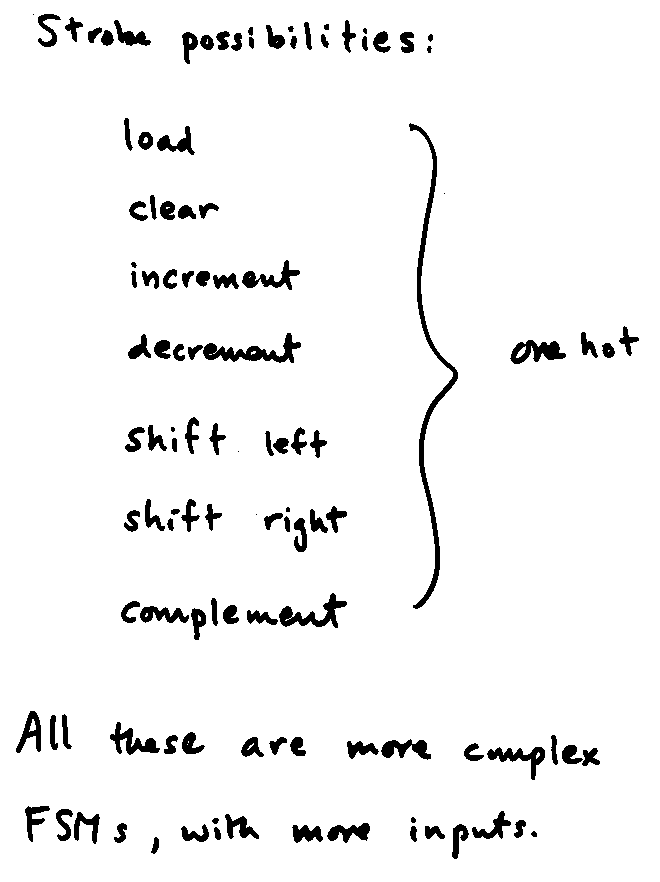 Strobe possibilities:
load
clear
increment
decrement
one hot
shift left
shift right
complement
All these are more complex
FSMs, with more inputs.